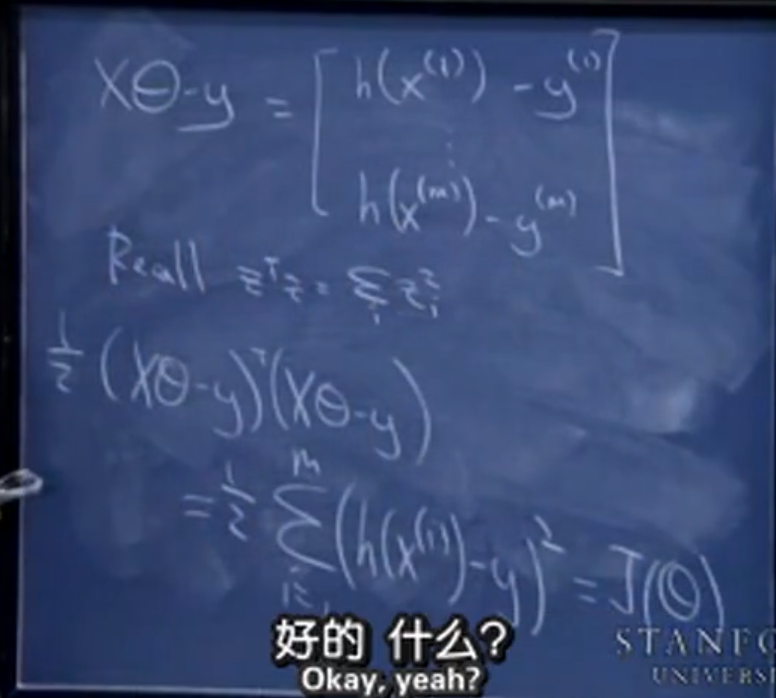 Xθ-y = [ h(x^(1)) - y^(1)
⋮
h(x^(m)) - y^(m) ]
Recall z^T z = Σ_i z_i^2
1/2 (Xθ-y)^T (Xθ-y)
= 1/2 Σ_{i=1}^m (h(x^(i)) - y)^2 = J(θ)
好的 什么?
Okay, yeah?
STANFO
UNIVERSI